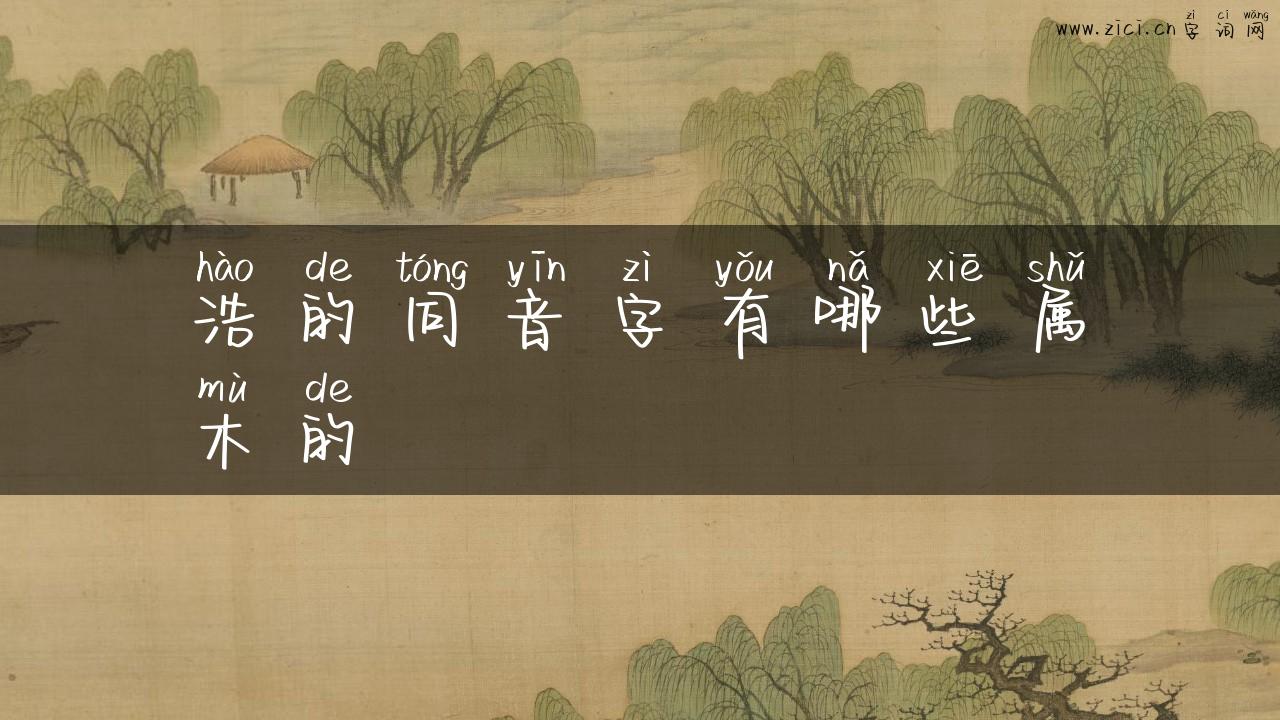 zì cí wǎng
www.zici.cn 字 词 网
hào de tóng yīn zì yǒu nǎ xiē shǔ
浩 的 同 音 字 有 哪 些 属
mù de
木 的